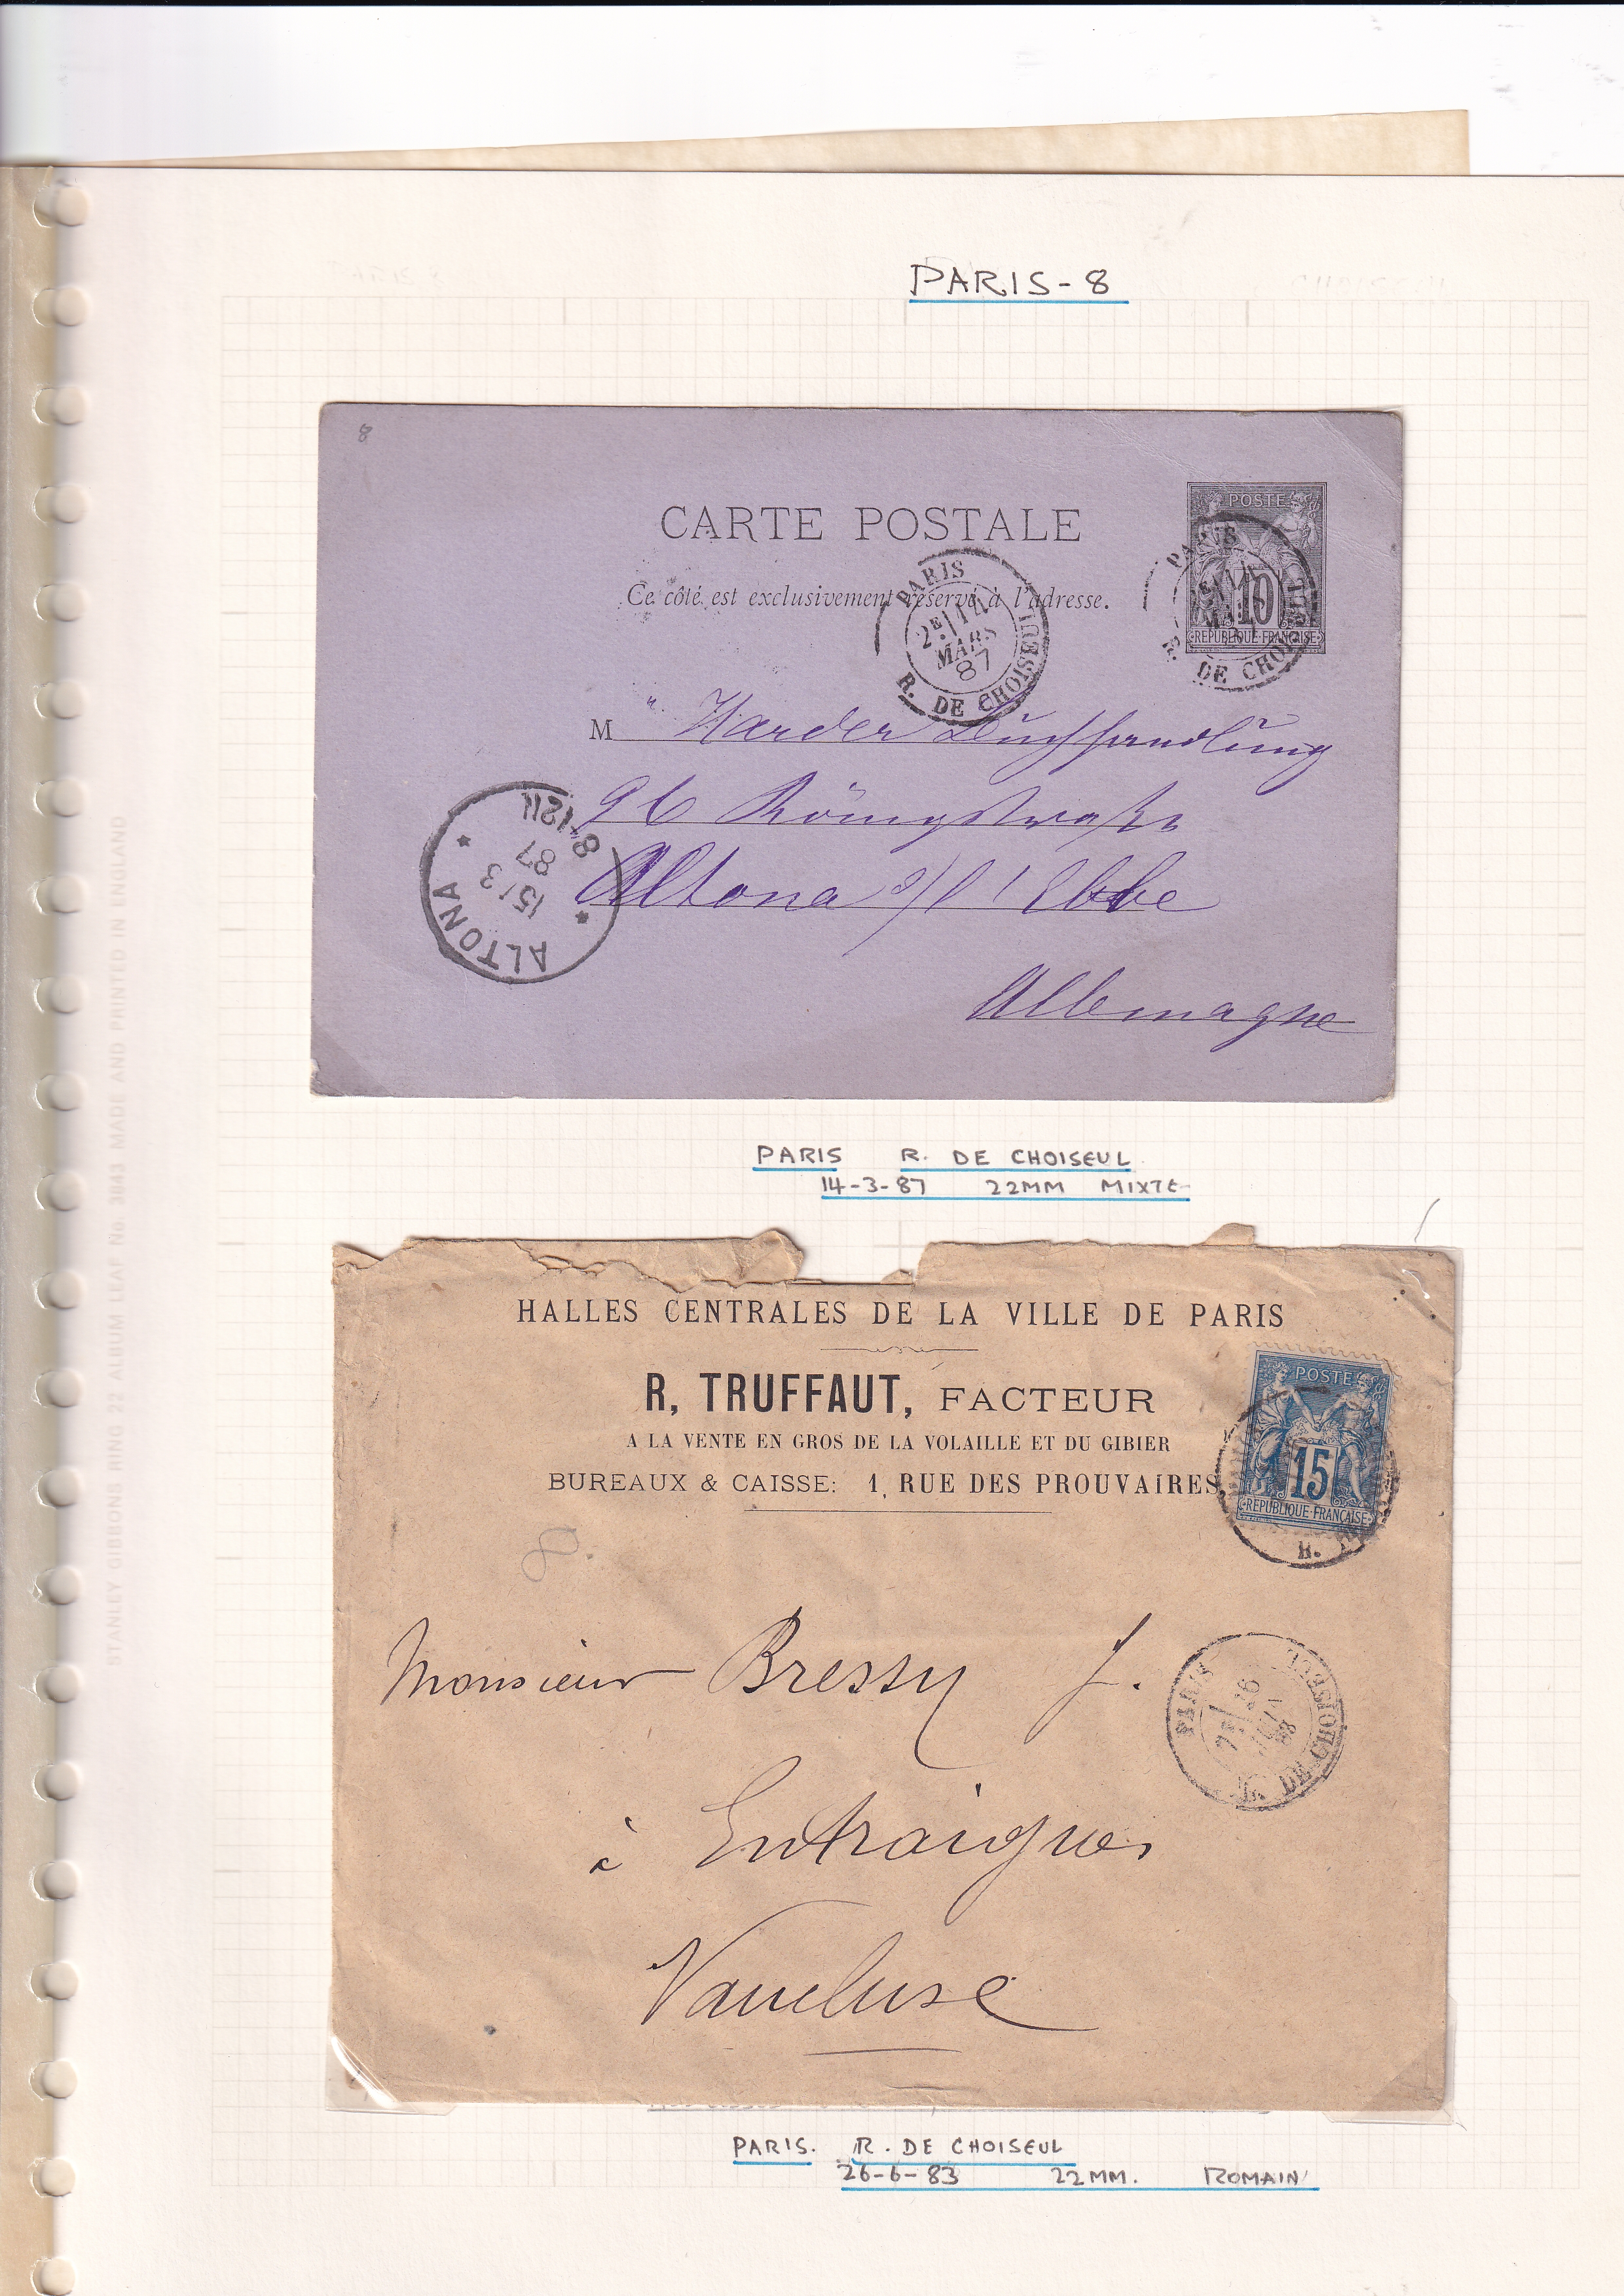 PARIS-8
8
CARTE POSTALE
Ce côté est exclusivement réservé à l'adresse.
POSTE
10
REPUBLIQUE FRANÇAISE
PARIS
DE CHOISEUL
PARIS
2E 14
MARS
87
R. DE CHOISEUL
M Harder Buchhandlung
96 Königstraße
Altona s/l'Elbe
Allemagne
ALTONA
15/3
87
8-12N
PARIS R. DE CHOISEUL
14-3-87 22MM MIXTE
HALLES CENTRALES DE LA VILLE DE PARIS
R, TRUFFAUT, FACTEUR
A LA VENTE EN GROS DE LA VOLAILLE ET DU GIBIER
BUREAUX & CAISSE: 1, RUE DES PROUVAIRES
POSTE
15
REPUBLIQUE FRANÇAISE
R.
8.
Monsieur Bressy J.
PARIS
7E 26
DE CHOISEUL
à Entraigues
Vaucluse
PARIS. R. DE CHOISEUL
26-6-83 22MM. ROMAIN
STANLEY GIBBONS RING 22 ALBUM LEAF No. 3843 MADE AND PRINTED IN ENGLAND